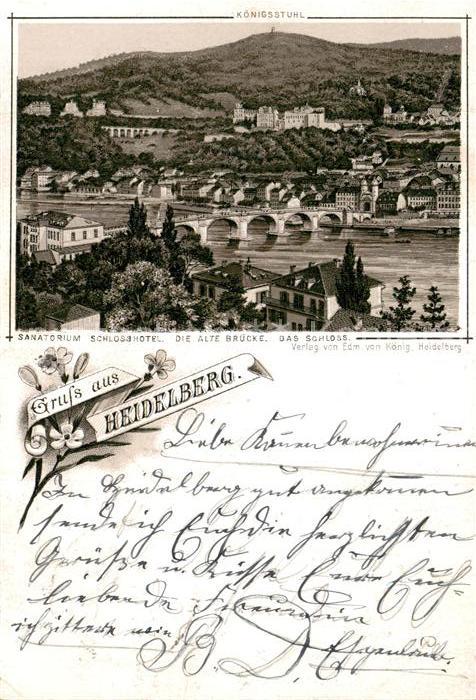 KÖNIGSSTUHL
SANATORIUM SCHLOSSHOTEL. DIE ALTE BRÜCKE. DAS SCHLOSS.
Verlag von Edm. von König, Heidelberg
Gruß aus
HEIDELBERG.
Liebe
In Heidelberg gut angekommen
sende ich Euch die herzlichsten
Grüße u. Küsse Eure Euch
liebende Freundin
ich zittere